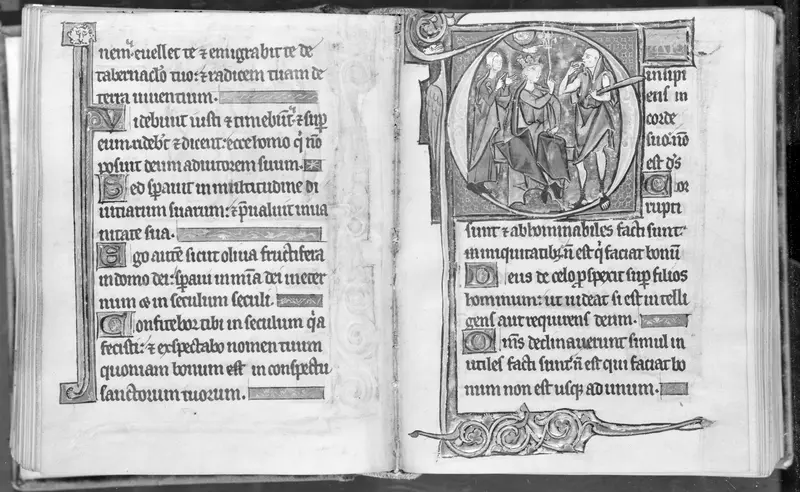 nem: euellet te ⁊ emigrabit te de
tabernaclo tuo: ⁊ radicem tuam de
terra uiuentium.
Videbunt iusti ⁊ timebūt: ⁊ sup
eum ridebt ⁊ dicent: ecce homo q nō
posuit deum adiutorem suum.
Sed spauit in multitudine di
uitiarum suarum: ⁊ pualuit in ua
nitate sua.
Ego autē sicut oliua fructifera
in domo dei: spaui in mīa dei in eter
num ⁊ in seculum seculi.
Confitebor tibi in seculum qa
fecisti: ⁊ exspectabo nomen tuum
quoniam bonum est in conspectu
sanctorum tuorum.
D
insipi
ens in
corde
suo: nō
est ds
Cor
rupti
sunt ⁊ abhominabiles facti sunt
in iniquitatib: n est q faciat bonū
Deus de celo pspexit sup filios
hominum: ut uideat si est intelli
gens aut requirens deum.
Oms declinauerunt simul in
utiles facti sunt: n est qui faciat bo
num non est usq ad unum.